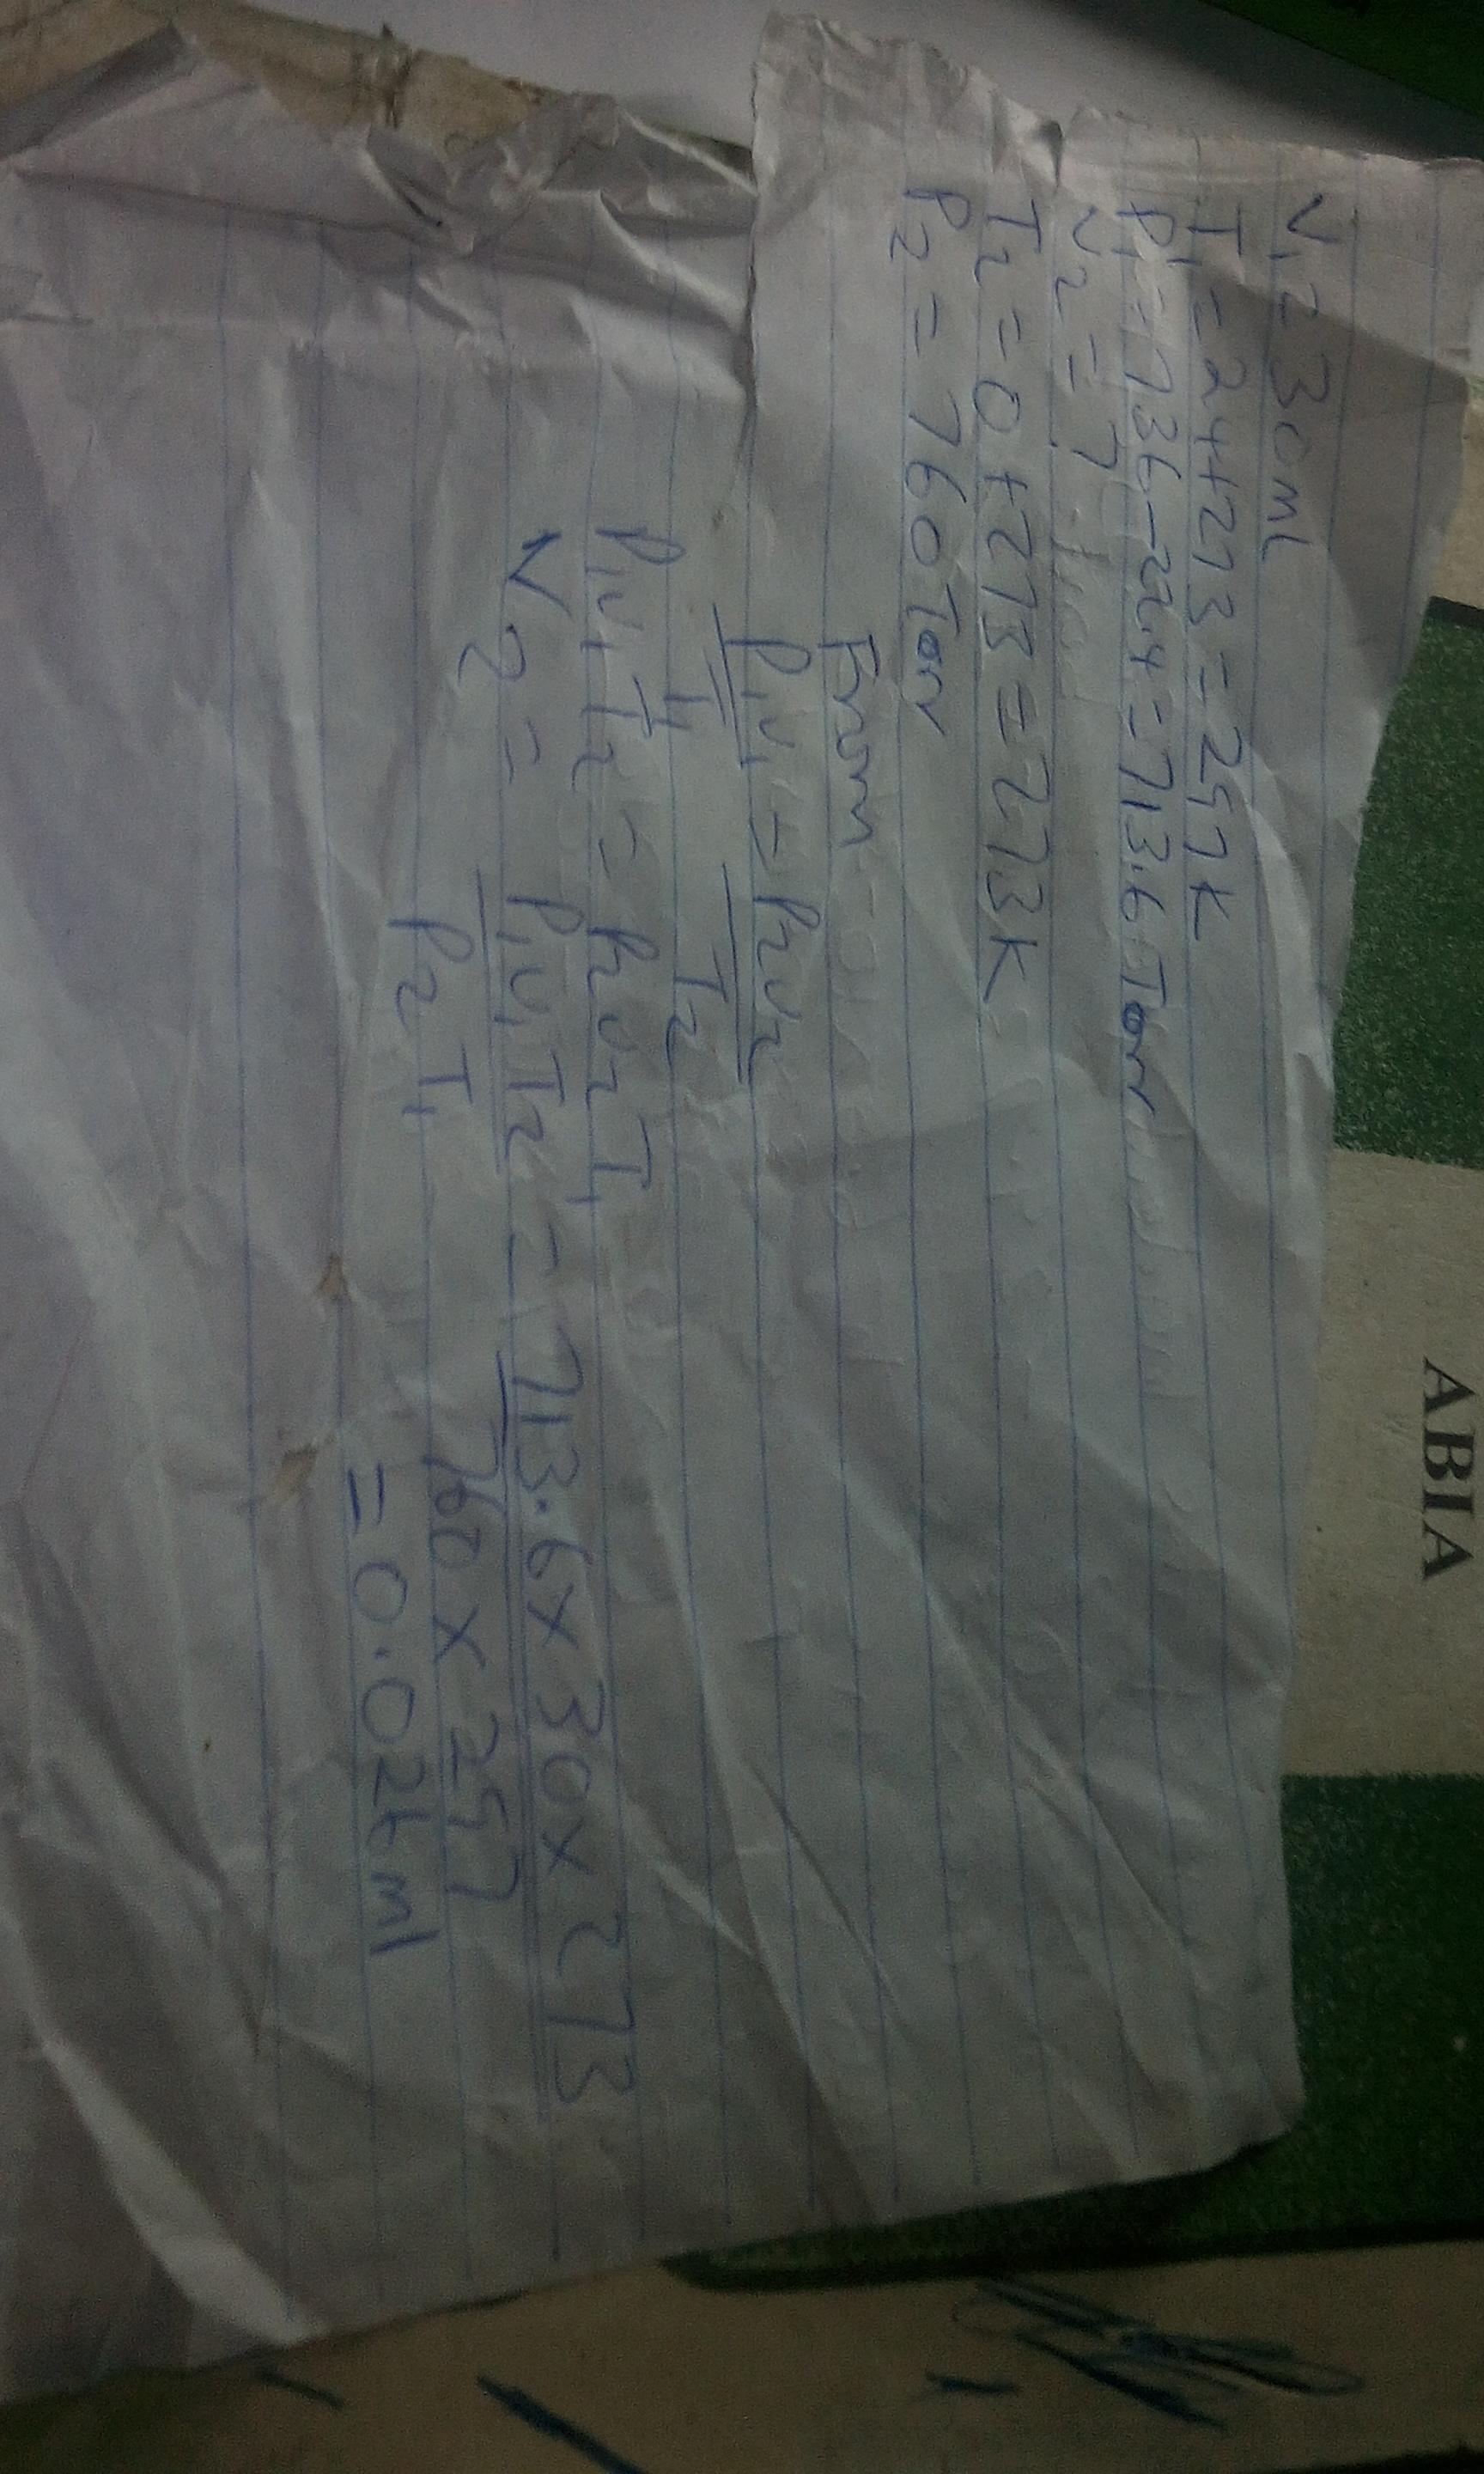 V₁ = 30ml
T₁ = 24+273 = 297K
P₁ = 736-22.4 = 713.6 Torr
V₂ = ?
T₂ = 0+273 = 273K
P₂ = 760 Torr
From
P₁V₁/T₁ = P₂V₂/T₂
P₁V₁T₂ = P₂V₂T₁
V₂ = P₁V₁T₂/P₂T₁ = 713.6 x 30 x 273/760 x 297
= 0.026ml
ABIA